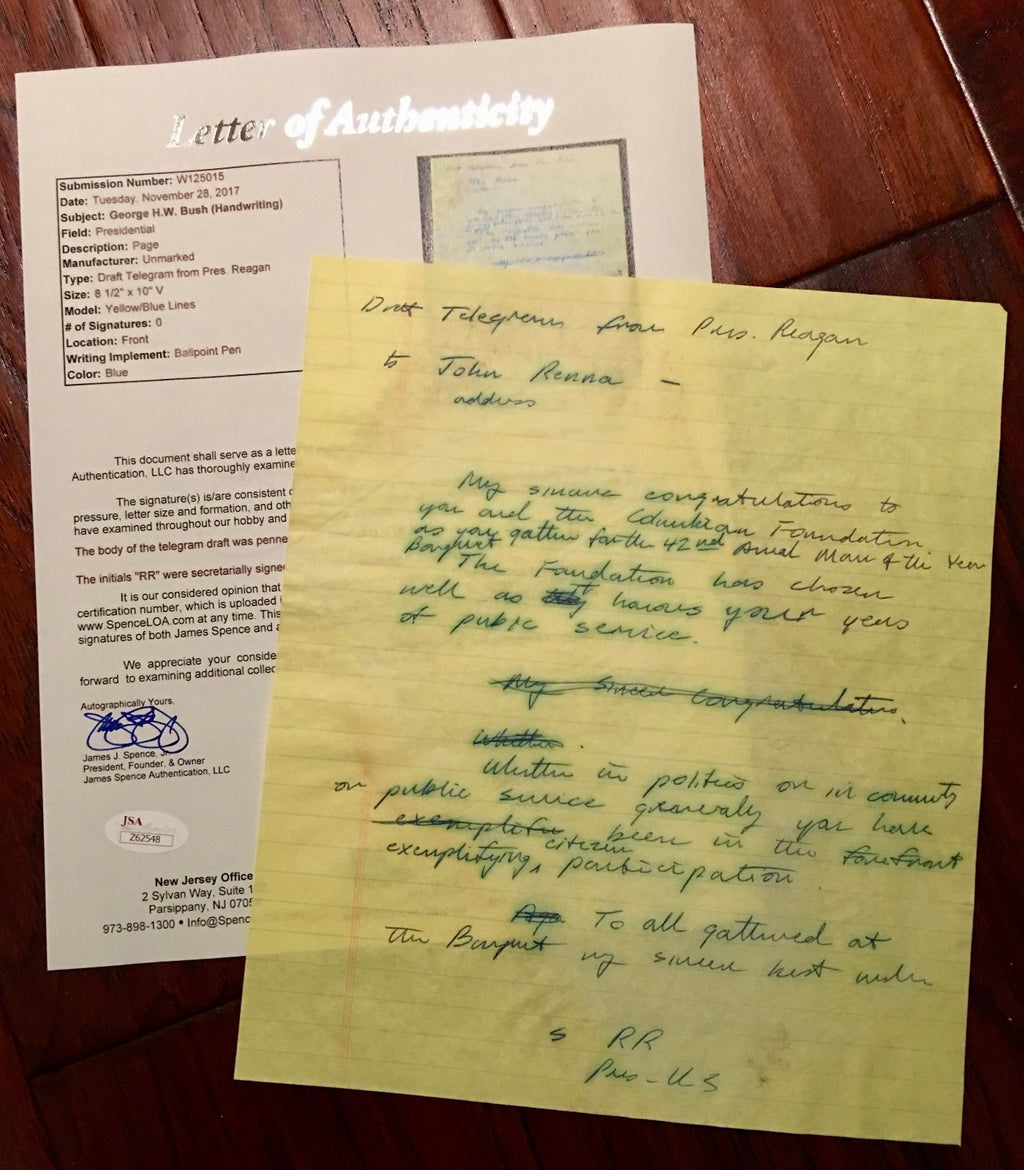 Letter of Authenticity
Submission Number: W125015
Date: Tuesday, November 28, 2017
Subject: George H.W. Bush (Handwriting)
Field: Presidential
Description: Page
Manufacturer: Unmarked
Type: Draft Telegram from Pres. Reagan
Size: 8 1/2" x 10" V
Model: Yellow/Blue Lines
# of Signatures: 0
Location: Front
Writing Implement: Ballpoint Pen
Color: Blue
This document shall serve as a lette
Authentication, LLC has thoroughly examine
The signature(s) is/are consistent
pressure, letter size and formation, and oth
have examined throughout our hobby and
The body of the telegram draft was penne
The initials "RR" were secretarially signe
It is our considered opinion that
certification number, which is uploaded
www.SpenceLOA.com at any time. This
signatures of both James Spence and a
We appreciate your conside
forward to examining additional collec
Autographically Yours,
James J. Spence, Jr.
President, Founder, & Owner
James Spence Authentication, LLC
JSA
Z62548
New Jersey Office
2 Sylvan Way, Suite 1
Parsippany, NJ 0705
973-898-1300 • Info@Spenc
Draft Telegram from Pres. Reagan
to John Renna —
address
My sincere congratulations to
you and the Columbian Foundation
as you gather for the 42nd Annual Man of the Year
Banquet
The Foundation has chosen
well as it honors your years
of public service.
My Sincere Congratulations.
Whether
Whether in politics or in community
or public service generally you have
exemplified been in the forefront
exemplifying citizen participation.
To all gathered at
the Banquet my sincere best wishes
s RR
Pres - US